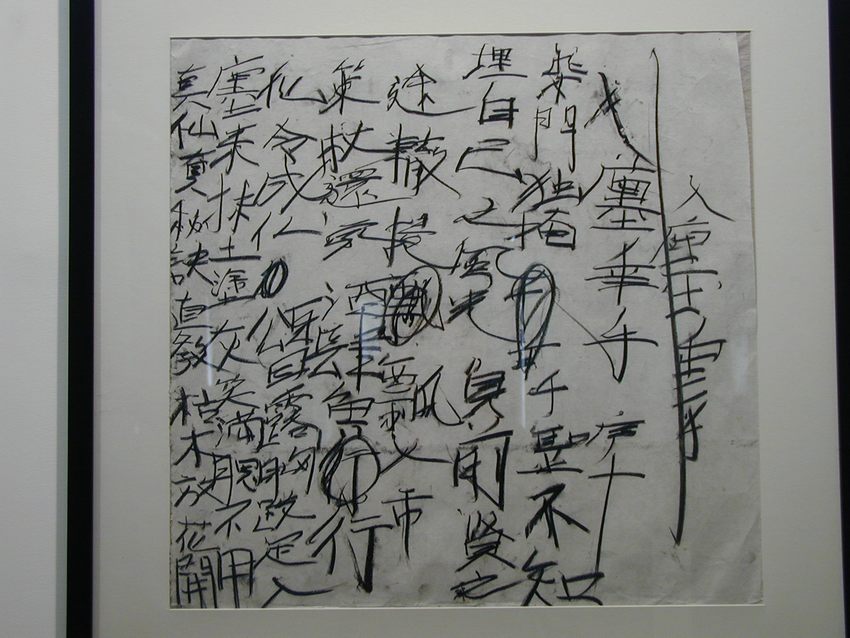 入廛垂手
入廛垂手 序十
柴門独掩 千聖不知
埋自己之風光 負前賢之
途轍提 瓢入市
策杖還家 酒肆魚行
化令成仏 頌曰露胸跣足入
廛来抹土塗灰笑満腮不用
仙真秘訣直教枯木放花開